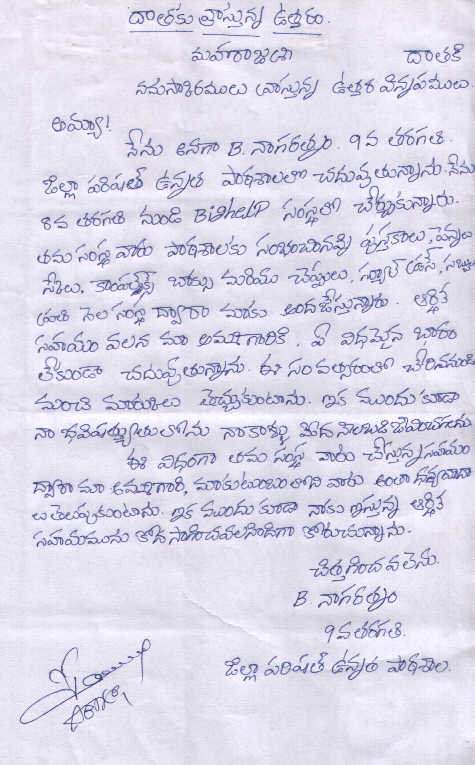 దాతకు వ్రాస్తున్న ఉత్తరం.
మహారాజశ్రీ దాతకి
నమస్కారములు వ్రాస్తున్న ఉత్తర విన్నపములు.
అమ్మా!
నేను అనగా B. నాగరత్నం. 9వ తరగతి.
జిల్లా పరిషత్ ఉన్నత పాఠశాలలో చదువుతున్నాను. నేను
8వ తరగతి నుండి Bighelp సంస్థలో చేర్చుకున్నారు.
తమ సంస్థ వారు పాఠశాలకు సంభందించినవి పుస్తకాలు, పెన్నులు
స్కేలు, బాక్సు మరియు చెప్పులు, స్కూల్ డ్రస్, సబ్బులు
ప్రతి నెల సంస్థ ద్వారా మాకు అందజేస్తున్నారు. ఆర్థిక
సహాయం వలన మా అమ్మగారికి, ఏ విధమైన భారం
లేకుండా చదువుతున్నాను. ఈ సంవత్సరంలో చేరినమండి
మంచి మార్కులు తెచ్చుకుంటాను. ఇక ముందు కూడా
నా భవిష్యత్తులోను నా కాళ్ళు మీద నిలబడి
ఈ విధంగా తమ సంస్థ వారు చేస్తున్న సహాయం
ద్వారా మా అమ్మగారి, మా కుటుంబంలోని వారు అంతా ధన్యవాదా
లు తెలుపుకుంటాను. ఇక ముందు కూడా నాకు ఇస్తున్న ఆర్థిక
సహాయమును కోరుచున్నాను.
చిత్తగించవలెను.
B. నాగరత్నం
9వ తరగతి.
జిల్లా పరిషత్ ఉన్నత పాఠశాల.